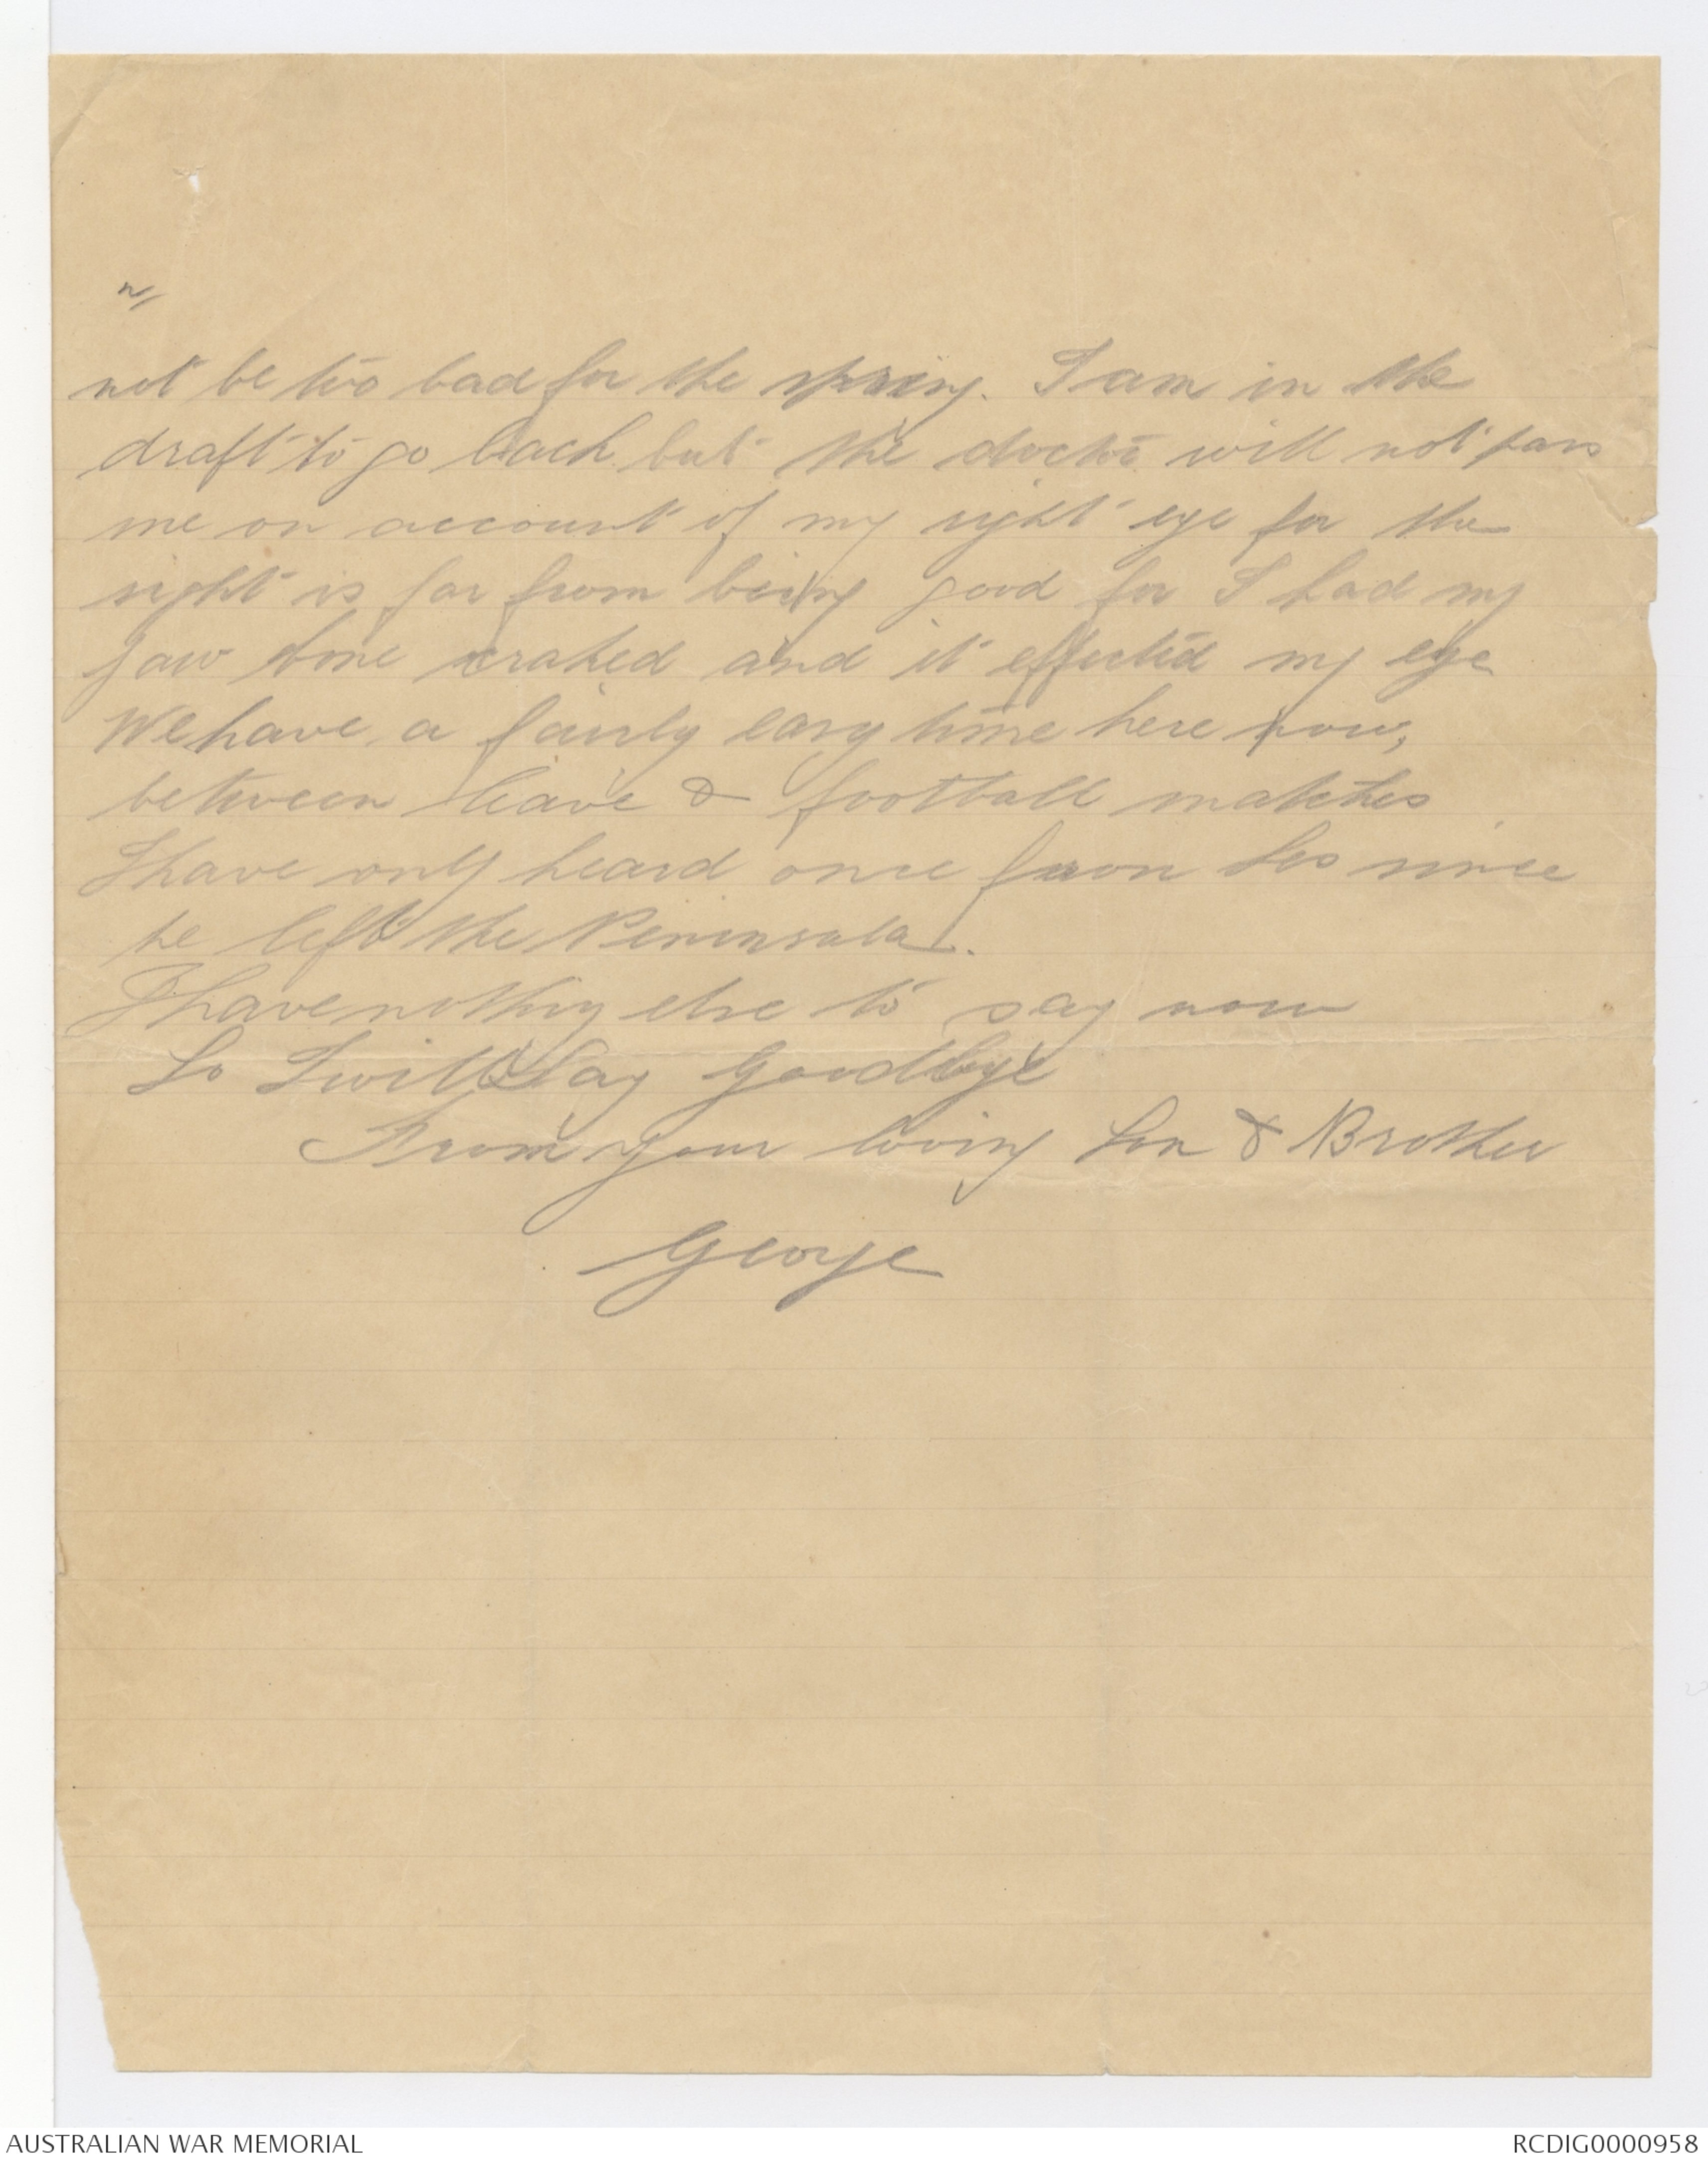 not be too bad for the spring. I am in the
draft to go back but the doctor will not pass
me on account of my right eye for the
sight is far from being good for I had my
jaw bone craked and it effected my eye
We have a fairly easy time here now,
between leave & football matches
I have only heard once from Les since
he left the Peninsula.
I have nothing else to say now
So I will say Goodbye
From your loving Son & Brother
George
AUSTRALIAN WAR MEMORIAL
RCDIG0000958